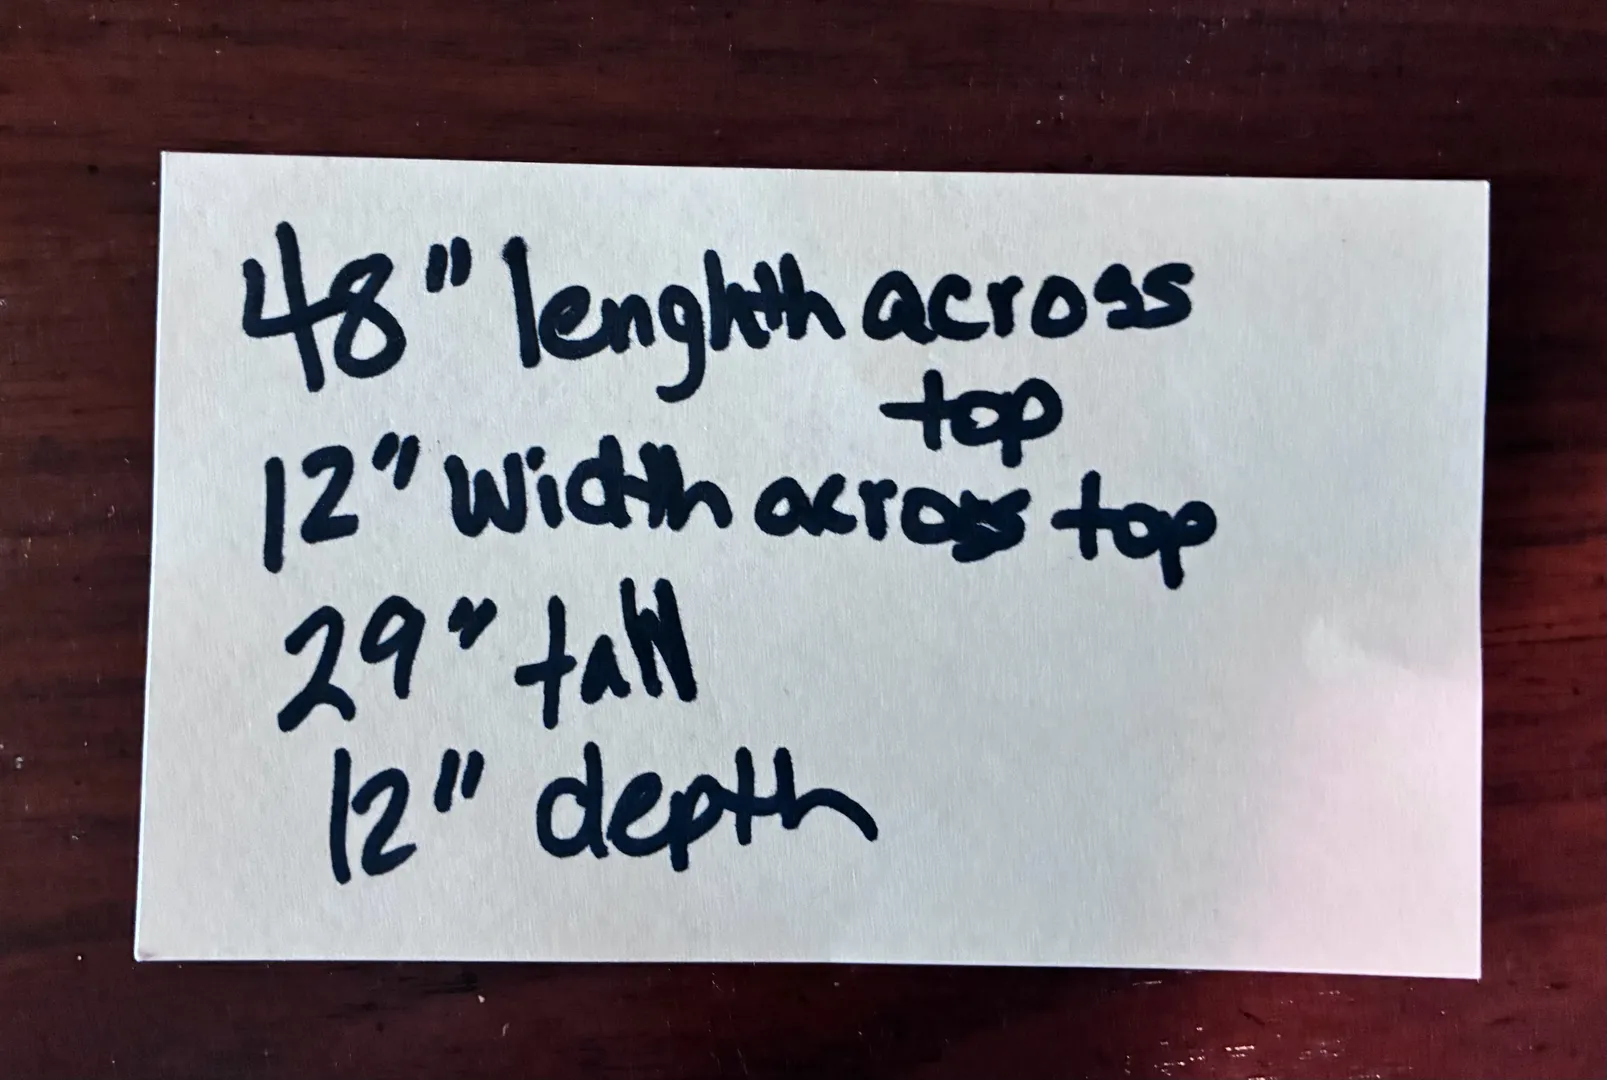 48" lenghth across
top
12" width across top
29" tall
12" depth